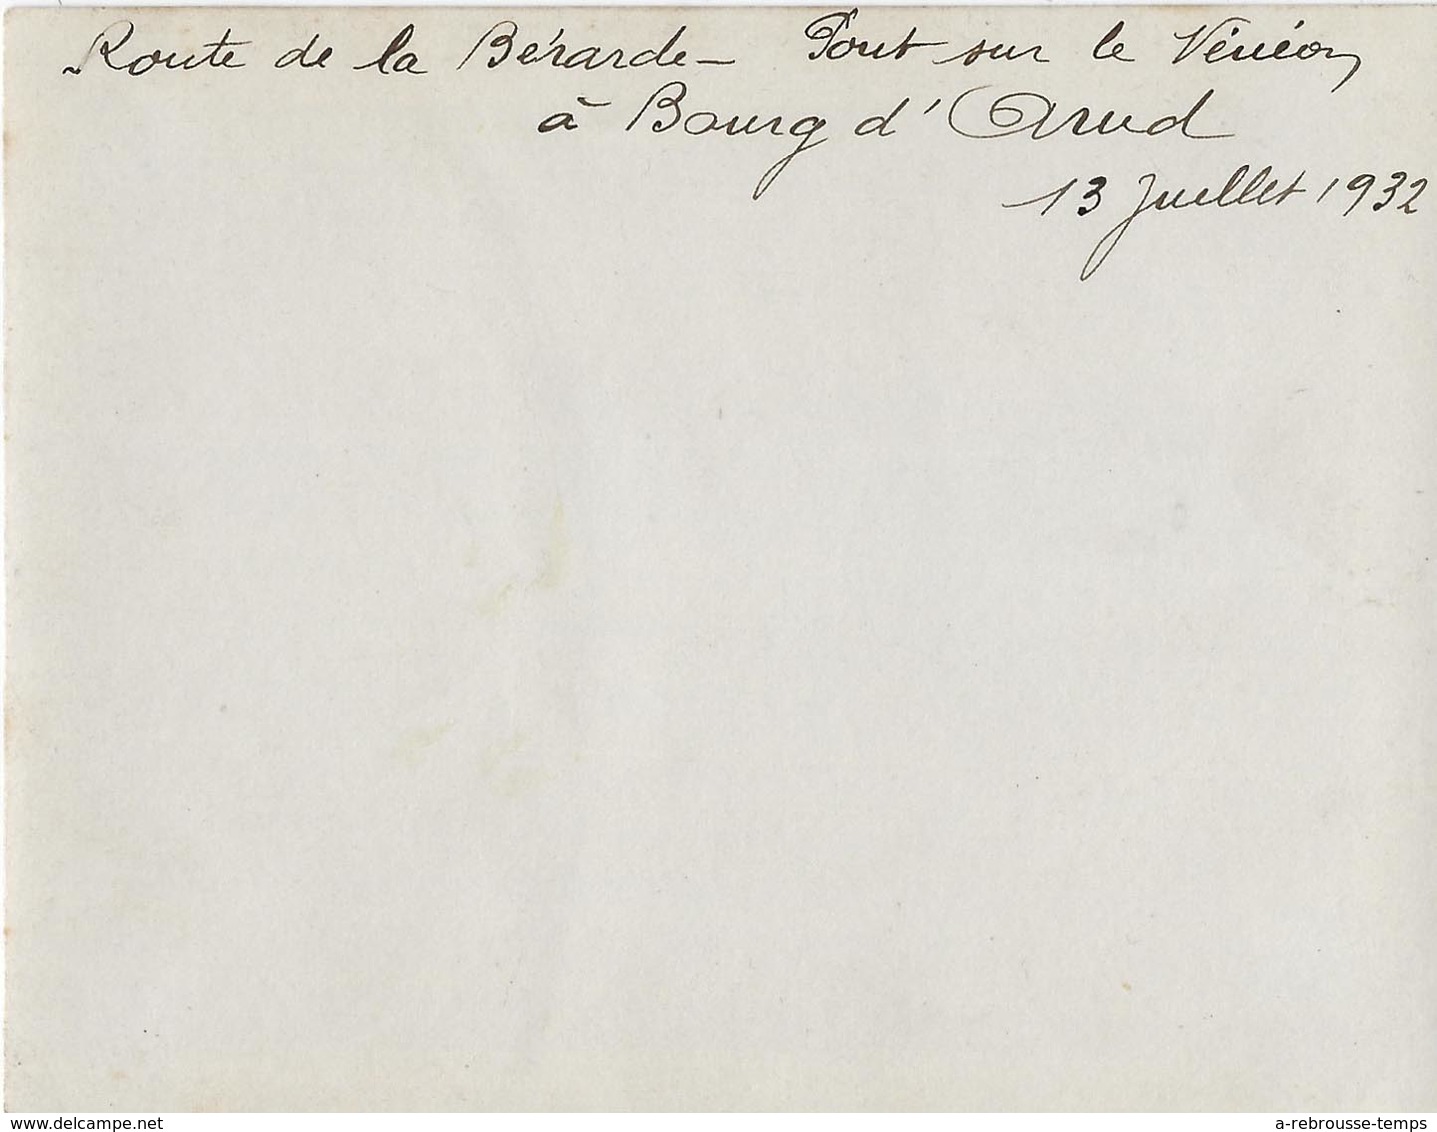 Route de la Bérarde - Pont sur le Vénéon,
à Bourg d'Arud
13 Juillet 1932
www.delcampe.net
a-rebrousse-temps